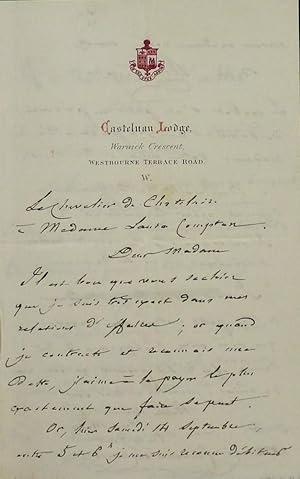 Castelnau Lodge,
Warwick Crescent,
WESTBOURNE TERRACE ROAD.
W.
Le Chevelier de Chatelain
à Madame Laura Compton
Dear Madame
Il est bon que vous sachiez
que je suis tout exact dans mes
relations d'affaires; or quand
je contracte et reconnais une
dette, j'aime à la payer le plus
exactement que faire se peut.
Or, hier samedi 14 Septembre,
entre 5 et 6 h je me suis reconnu débiteur